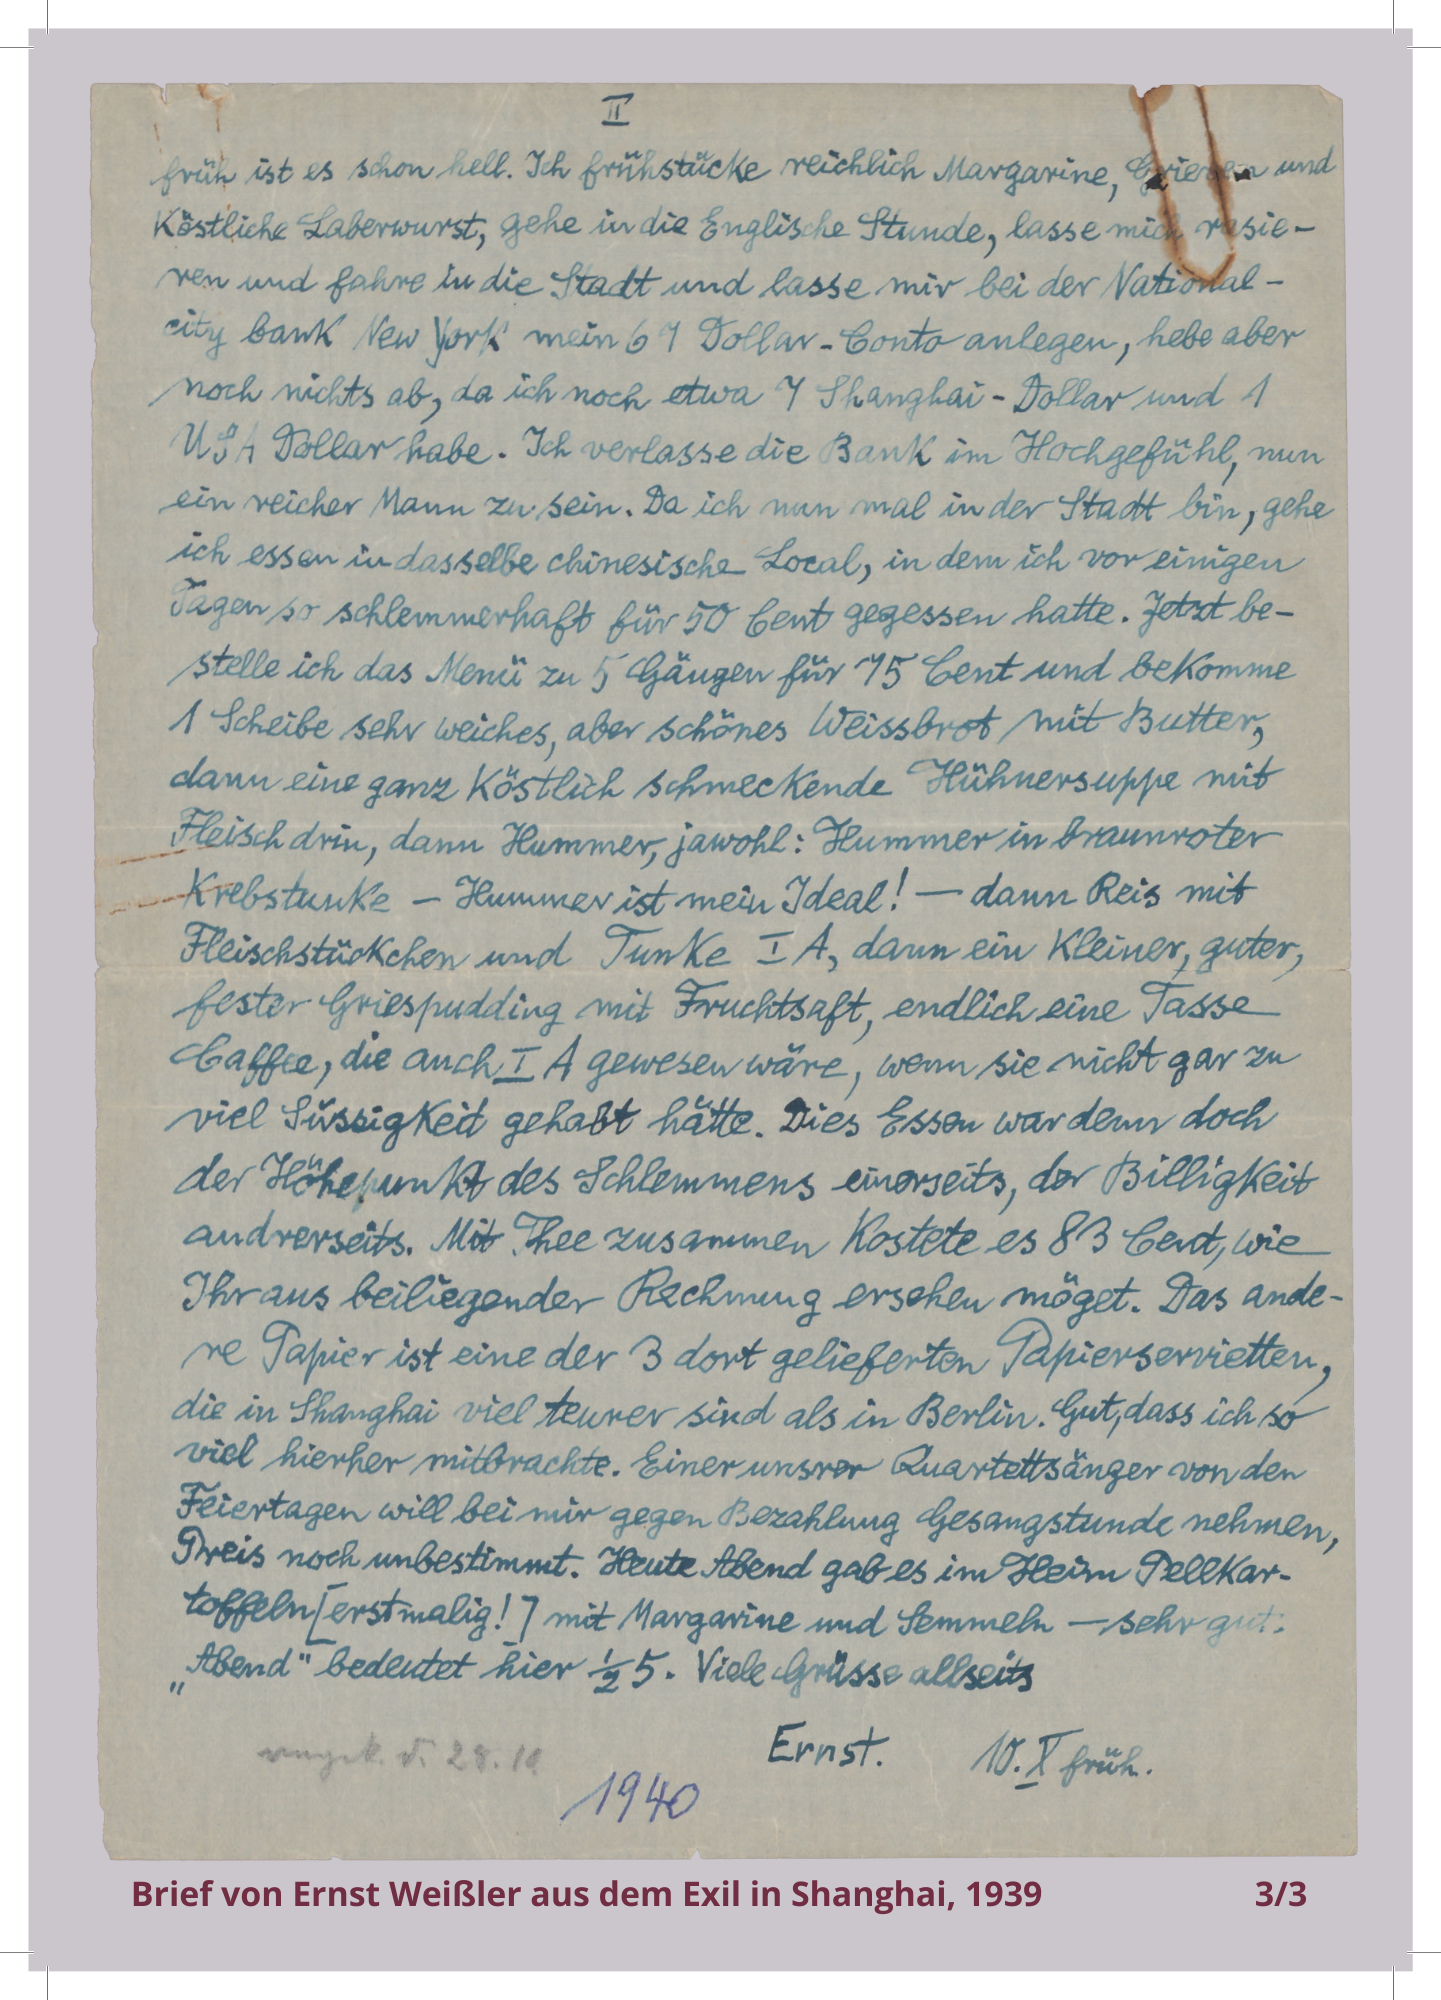 II
früh ist es schon hell. Ich frühstücke reichlich Margarine, Grieven und
Köstliche Laberwurst, gehe in die Englische Stunde, lasse mich rasie-
ren und fahre in die Stadt und lasse mir bei der National-
city bank New York mein 67 Dollar-Conto anlegen, hebe aber
noch nichts ab, da ich noch etwa 7 Shanghai-Dollar und 1
USA Dollar habe. Ich verlasse die Bank im Hochgefühl, nun
ein reicher Mann zu sein. Da ich nun mal in der Stadt bin, gehe
ich essen in dasselbe chinesische Local, in dem ich vor einigen
Tagen so schlemmerhaft für 50 Cent gegessen hatte. Jetzt be-
stelle ich das Menü zu 5 Gängen für 75 Cent und bekomme
1 Scheibe sehr weiches, aber schönes Weissbrot mit Butter,
dann eine ganz Köstlich schmeckende Hühnersuppe mit
Fleisch drin, dann Hummer, jawohl: Hummer in braunroter
Krebstunke – Hummer ist mein Ideal! – dann Reis mit
Fleischstückchen und Tunke I A, dann ein Kleiner, guter,
fester Griespudding mit Fruchtsaft, endlich eine Tasse
Caffee, die auch I A gewesen wäre, wenn sie nicht gar zu
viel Süssigkeit gehabt hätte. Dies Essen war denn doch
der Höhepunkt des Schlemmens einerseits, der Billigkeit
andrerseits. Mit Thee zusammen kostete es 83 Cent, wie
Ihr aus beiliegender Rechnung ersehen möget. Das ande-
re Papier ist eine der 3 dort gelieferten Papierservietten,
die in Shanghai viel teurer sind als in Berlin. Gut, dass ich so
viel hierher mitbrachte. Einer unsrer Quartettsänger von den
Feiertagen will bei mir gegen Bezahlung Gesangstunde nehmen,
Preis noch unbestimmt. Heute Abend gab es im Heim Pellkar-
toffeln [erstmalig!] mit Margarine und Semmeln – sehr gut.
„Abend" bedeutet hier ½ 5. Viele Grüsse allseits
Ernst. 10. X früh.
28.10
1940
Brief von Ernst Weißler aus dem Exil in Shanghai, 1939 3/3